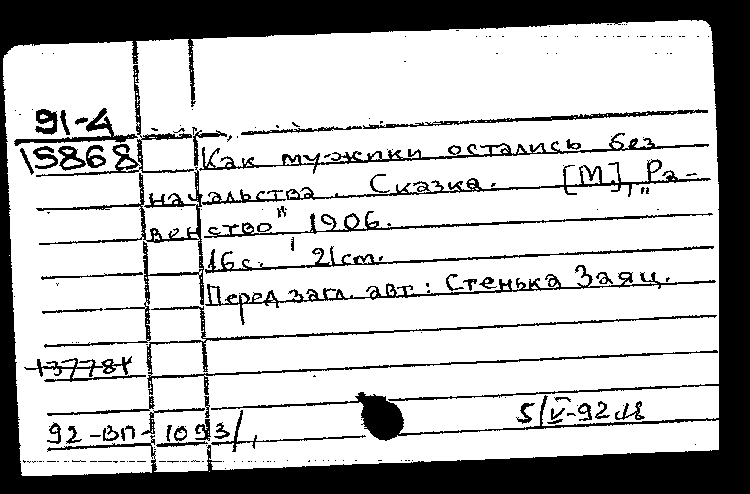 91-4
15868
Как мужики остались без
начальства. Сказка. [М.], „Ра-
венство", 1906.
16 с. 21 cm.
Перед загл. авт.: Стенька Заяц.
92-ВП-1093/
5/V-92